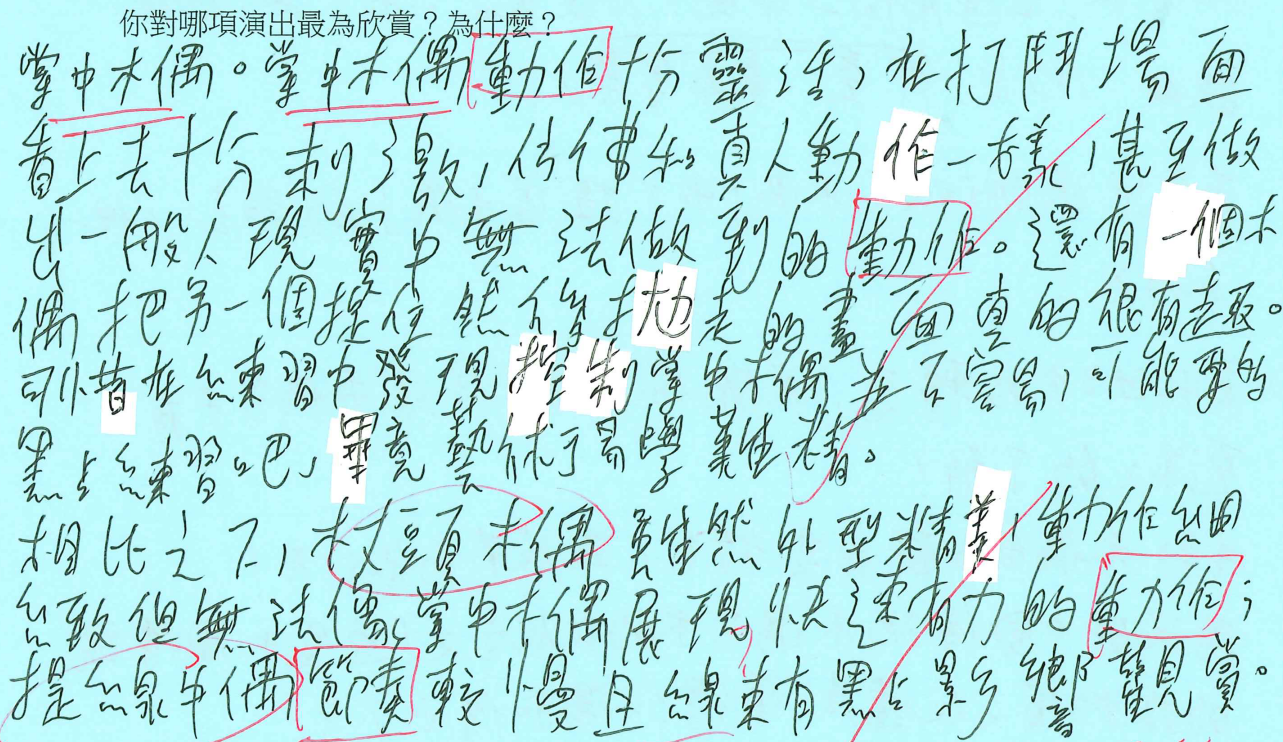 你對哪項演出最為欣賞？為什麼？
掌中木偶。掌中木偶動作十分靈活，在打鬥場面
看上去十分刺激，仿佛和真人動作一樣，甚至做
出一般人現實中無法做到的動作。還有一個木
偶把另一個捉住然後拋走的畫面真的很有趣。
可惜在練習中發現控制掌中木偶並不容易，可能要的
點練習吧，畢竟藝術易學難精。
相比之下，杖頭木偶雖然外型精美，動作細
緻但無法像掌中木偶展現快速有力的動作；
提線木偶節奏較慢且線束有點影響觀賞。